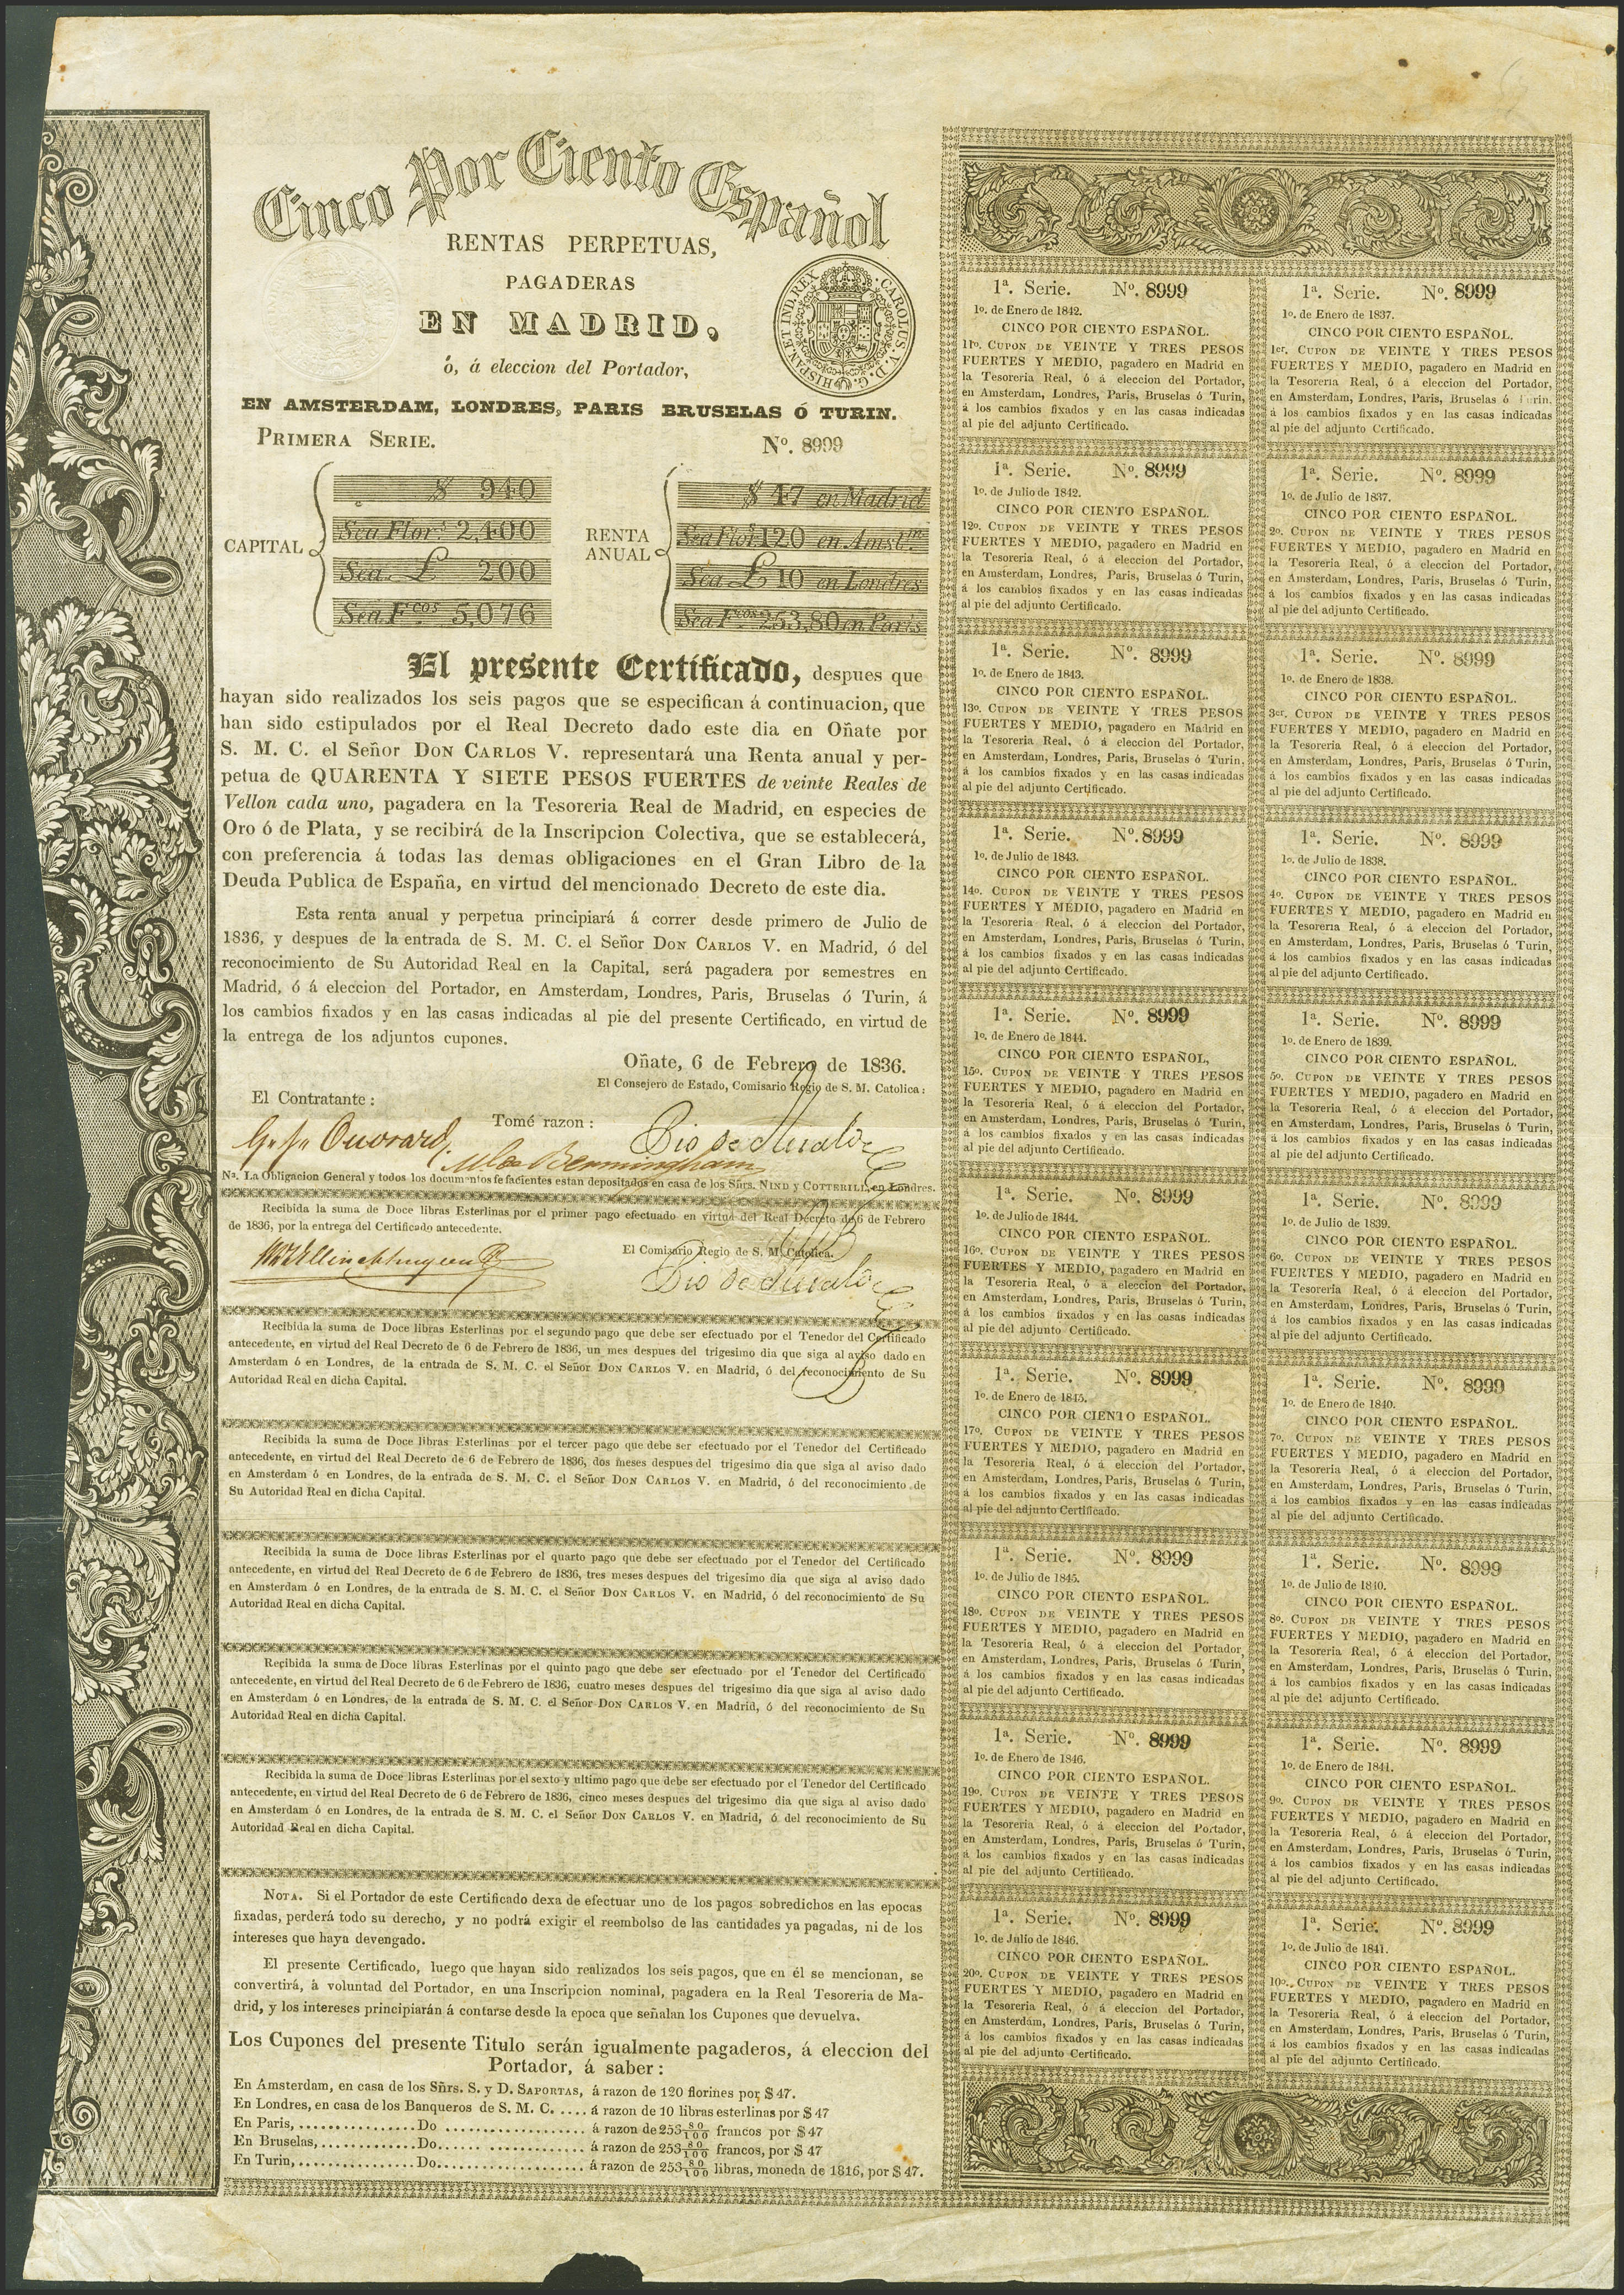 Cinco Por Ciento Español
RENTAS PERPETUAS,
PAGADERAS
EN MADRID,
ò, á eleccion del Portador,
CAROLUS V. D. G. HISPAN. ET IND. REX
EN AMSTERDAM, LONDRES, PARIS BRUSELAS Ó TURIN.
PRIMERA SERIE. Nº. 8999
CAPITAL
$ 940
Sea Flor.s 2,400
Sea £ 200
Sea F.cos 5,076
RENTA ANUAL
$ 47 en Madrid
Sea Flor.s 120 en Amst.m
Sea £ 10 en Londres
Sea F.cos 253,80 en Paris
El presente Certificado, despues que
hayan sido realizados los seis pagos que se especifican á continuacion, que
han sido estipulados por el Real Decreto dado este dia en Oñate por
S. M. C. el Señor DON CARLOS V. representará una Renta anual y per-
petua de QUARENTA Y SIETE PESOS FUERTES de veinte Reales de
Vellon cada uno, pagadera en la Tesoreria Real de Madrid, en especies de
Oro ó de Plata, y se recibirá de la Inscripcion Colectiva, que se establecerá,
con preferencia á todas las demas obligaciones en el Gran Libro de la
Deuda Publica de España, en virtud del mencionado Decreto de este dia.
Esta renta anual y perpetua principiará á correr desde primero de Julio de
1836, y despues de la entrada de S. M. C. el Señor DON CARLOS V. en Madrid, ó del
reconocimiento de Su Autoridad Real en la Capital, será pagadera por semestres en
Madrid, ó á eleccion del Portador, en Amsterdam, Londres, Paris, Bruselas ó Turin, á
los cambios fixados y en las casas indicadas al pie del presente Certificado, en virtud de
la entrega de los adjuntos cupones.
Oñate, 6 de Febrero de 1836.
El Consejero de Estado, Comisario Regio de S. M. Catolica:
El Contratante:
Tomé razon:
Ouvrard
Bermingham
Nª. La Obligacion General y todos los documentos fefacientes estan depositados en casa de los Sñrs. NIND y COTTERILL, en Londres.
Recibida la suma de Doce libras Esterlinas por el primer pago efectuado en virtud del Real Decreto de 6 de Febrero
de 1836, por la entrega del Certificado antecedente.
El Comisario Regio de S. M. Catolica.
Recibida la suma de Doce libras Esterlinas por el segundo pago que debe ser efectuado por el Tenedor del Certificado
antecedente, en virtud del Real Decreto de 6 de Febrero de 1836, un mes despues del trigesimo dia que siga al aviso dado en
Amsterdam ó en Londres, de la entrada de S. M. C. el Señor DON CARLOS V. en Madrid, ó del reconocimiento de Su
Autoridad Real en dicha Capital.
Recibida la suma de Doce libras Esterlinas por el tercer pago que debe ser efectuado por el Tenedor del Certificado
antecedente, en virtud del Real Decreto de 6 de Febrero de 1836, dos meses despues del trigesimo dia que siga al aviso dado
en Amsterdam ó en Londres, de la entrada de S. M. C. el Señor DON CARLOS V. en Madrid, ó del reconocimiento de
Su Autoridad Real en dicha Capital.
Recibida la suma de Doce libras Esterlinas por el quarto pago que debe ser efectuado por el Tenedor del Certificado
antecedente, en virtud del Real Decreto de 6 de Febrero de 1836, tres meses despues del trigesimo dia que siga al aviso dado
en Amsterdam ó en Londres, de la entrada de S. M. C. el Señor DON CARLOS V. en Madrid, ó del reconocimiento de Su
Autoridad Real en dicha Capital.
Recibida la suma de Doce libras Esterlinas por el quinto pago que debe ser efectuado por el Tenedor del Certificado
antecedente, en virtud del Real Decreto de 6 de Febrero de 1836, cuatro meses despues del trigesimo dia que siga al aviso dado
en Amsterdam ó en Londres, de la entrada de S. M. C. el Señor DON CARLOS V. en Madrid, ó del reconocimiento de Su
Autoridad Real en dicha Capital.
Recibida la suma de Doce libras Esterlinas por el sexto y ultimo pago que debe ser efectuado por el Tenedor del Certificado
antecedente, en virtud del Real Decreto de 6 de Febrero de 1836, cinco meses despues del trigesimo dia que siga al aviso dado
en Amsterdam ó en Londres, de la entrada de S. M. C. el Señor DON CARLOS V. en Madrid, ó del reconocimiento de Su
Autoridad Real en dicha Capital.
NOTA. Si el Portador de este Certificado dexa de efectuar uno de los pagos sobredichos en las epocas
fixadas, perderá todo su derecho, y no podrá exigir el reembolso de las cantidades ya pagadas, ni de los
intereses que haya devengado.
El presente Certificado, luego que hayan sido realizados los seis pagos, que en él se mencionan, se
convertirá, á voluntad del Portador, en una Inscripcion nominal, pagadera en la Real Tesoreria de Ma-
drid, y los intereses principiarán á contarse desde la epoca que señalan los Cupones que devuelva.
Los Cupones del presente Titulo serán igualmente pagaderos, á eleccion del
Portador, á saber:
En Amsterdam, en casa de los Sñrs. S. y D. SAPORTAS, á razon de 120 florines por $ 47.
En Londres, en casa de los Banqueros de S. M. C. .... á razon de 10 libras esterlinas por $ 47
En Paris, ................Do .................... á razon de 253 80/100 francos por $ 47
En Bruselas,.............Do...... .............. á razon de 253 80/100 francos, por $ 47
En Turin,................Do..................... á razon de 253 80/100 libras, moneda de 1816, por $ 47.
1ª. Serie. Nº. 8999
1º. de Enero de 1842.
CINCO POR CIENTO ESPAÑOL.
11º. CUPON DE VEINTE Y TRES PESOS
FUERTES Y MEDIO, pagadero en Madrid en
la Tesoreria Real, ó á eleccion del Portador,
en Amsterdam, Londres, Paris, Bruselas ó Turin,
á los cambios fixados y en las casas indicadas
al pie del adjunto Certificado.
1ª. Serie. Nº. 8999
1º. de Julio de 1842.
CINCO POR CIENTO ESPAÑOL.
12º. CUPON DE VEINTE Y TRES PESOS
FUERTES Y MEDIO, pagadero en Madrid en
la Tesoreria Real, ó á eleccion del Portador,
en Amsterdam, Londres, Paris, Bruselas ó Turin,
á los cambios fixados y en las casas indicadas
al pie del adjunto Certificado.
1ª. Serie. Nº. 8999
1º. de Enero de 1843.
CINCO POR CIENTO ESPAÑOL.
13º. CUPON DE VEINTE Y TRES PESOS
FUERTES Y MEDIO, pagadero en Madrid en
la Tesoreria Real, ó á eleccion del Portador,
en Amsterdam, Londres, Paris, Bruselas ó Turin,
á los cambios fixados y en las casas indicadas
al pie del adjunto Certificado.
1ª. Serie. Nº. 8999
1º. de Julio de 1843.
CINCO POR CIENTO ESPAÑOL.
14º. CUPON DE VEINTE Y TRES PESOS
FUERTES Y MEDIO, pagadero en Madrid en
la Tesoreria Real, ó á eleccion del Portador,
en Amsterdam, Londres, Paris, Bruselas ó Turin,
á los cambios fixados y en las casas indicadas
al pie del adjunto Certificado.
1ª. Serie. Nº. 8999
1º. de Enero de 1844.
CINCO POR CIENTO ESPAÑOL,
15º. CUPON DE VEINTE Y TRES PESOS
FUERTES Y MEDIO, pagadero en Madrid en
la Tesoreria Real, ó á eleccion del Portador,
en Amsterdam, Londres, Paris, Bruselas ó Turin,
á los cambios fixados y en las casas indicadas
al pie del adjunto Certificado.
1ª. Serie. Nº. 8999
1º. de Julio de 1844.
CINCO POR CIENTO ESPAÑOL.
16º. CUPON DE VEINTE Y TRES PESOS
FUERTES Y MEDIO, pagadero en Madrid en
la Tesoreria Real, ó á eleccion del Portador,
en Amsterdam, Londres, Paris, Bruselas ó Turin,
á los cambios fixados y en las casas indicadas
al pie del adjunto Certificado.
1ª. Serie. Nº. 8999
1º. de Enero de 1845.
CINCO POR CIENTO ESPAÑOL.
17º. CUPON DE VEINTE Y TRES PESOS
FUERTES Y MEDIO, pagadero en Madrid en
la Tesoreria Real, ó á eleccion del Portador,
en Amsterdam, Londres, Paris, Bruselas ó Turin,
á los cambios fixados y en las casas indicadas
al pie del adjunto Certificado.
1ª. Serie. Nº. 8999
1º. de Julio de 1845.
CINCO POR CIENTO ESPAÑOL.
18º. CUPON DE VEINTE Y TRES PESOS
FUERTES Y MEDIO, pagadero en Madrid en
la Tesoreria Real, ó á eleccion del Portador,
en Amsterdam, Londres, Paris, Bruselas ó Turin,
á los cambios fixados y en las casas indicadas
al pie del adjunto Certificado.
1ª. Serie. Nº. 8999
1º. de Enero de 1846.
CINCO POR CIENTO ESPAÑOL.
19º. CUPON DE VEINTE Y TRES PESOS
FUERTES Y MEDIO, pagadero en Madrid en
la Tesoreria Real, ó á eleccion del Portador,
en Amsterdam, Londres, Paris, Bruselas ó Turin,
á los cambios fixados y en las casas indicadas
al pie del adjunto Certificado.
1ª. Serie. Nº. 8999
1º. de Julio de 1846.
CINCO POR CIENTO ESPAÑOL.
20º. CUPON DE VEINTE Y TRES PESOS
FUERTES Y MEDIO, pagadero en Madrid en
la Tesoreria Real, ó á eleccion del Portador,
en Amsterdam, Londres, Paris, Bruselas ó Turin,
á los cambios fixados y en las casas indicadas
al pie del adjunto Certificado.
1ª. Serie. Nº. 8999
1º. de Enero de 1837.
CINCO POR CIENTO ESPAÑOL.
1er. CUPON DE VEINTE Y TRES PESOS
FUERTES Y MEDIO, pagadero en Madrid en
la Tesoreria Real, ó á eleccion del Portador,
en Amsterdam, Londres, Paris, Bruselas ó Turin.
á los cambios fixados y en las casas indicadas
al pie del adjunto Certificado.
1ª. Serie. Nº. 8999
1º. de Julio de 1837.
CINCO POR CIENTO ESPAÑOL.
2º. CUPON DE VEINTE Y TRES PESOS
FUERTES Y MEDIO, pagadero en Madrid en
la Tesoreria Real, ó á eleccion del Portador,
en Amsterdam, Londres, Paris, Bruselas ó Turin,
á los cambios fixados y en las casas indicadas
al pie del adjunto Certificado.
1ª. Serie. Nº. 8999
1º. de Enero de 1838.
CINCO POR CIENTO ESPAÑOL.
3er. CUPON DE VEINTE Y TRES PESOS
FUERTES Y MEDIO, pagadero en Madrid en
la Tesoreria Real, ó á eleccion del Portador,
en Amsterdam, Londres, Paris, Bruselas ó Turin,
á los cambios fixados y en las casas indicadas
al pie del adjunto Certificado.
1ª. Serie. Nº. 8999
1º. de Julio de 1838.
CINCO POR CIENTO ESPAÑOL.
4º. CUPON DE VEINTE Y TRES PESOS
FUERTES Y MEDIO, pagadero en Madrid en
la Tesoreria Real, ó á eleccion del Portador,
en Amsterdam, Londres, Paris, Bruselas ó Turin,
á los cambios fixados y en las casas indicadas
al pie del adjunto Certificado.
1ª. Serie. Nº. 8999
1º. de Enero de 1839.
CINCO POR CIENTO ESPAÑOL.
5º. CUPON DE VEINTE Y TRES PESOS
FUERTES Y MEDIO, pagadero en Madrid en
la Tesoreria Real, ó á eleccion del Portador,
en Amsterdam, Londres, Paris, Bruselas ó Turin,
á los cambios fixados y en las casas indicadas
al pie del adjunto Certificado.
1ª. Serie. Nº. 8999
1º. de Julio de 1839.
CINCO POR CIENTO ESPAÑOL.
6º. CUPON DE VEINTE Y TRES PESOS
FUERTES Y MEDIO, pagadero en Madrid en
la Tesoreria Real, ó á eleccion del Portador,
en Amsterdam, Londres, Paris, Bruselas ó Turin,
á los cambios fixados y en las casas indicadas
al pie del adjunto Certificado.
1ª. Serie. Nº. 8999
1º. de Enero de 1840.
CINCO POR CIENTO ESPAÑOL.
7º. CUPON DE VEINTE Y TRES PESOS
FUERTES Y MEDIO, pagadero en Madrid en
la Tesoreria Real, ó á eleccion del Portador,
en Amsterdam, Londres, Paris, Bruselas ó Turin,
á los cambios fixados y en las casas indicadas
al pie del adjunto Certificado.
1ª. Serie. Nº. 8999
1º. de Julio de 1840.
CINCO POR CIENTO ESPAÑOL.
8º. CUPON DE VEINTE Y TRES PESOS
FUERTES Y MEDIO, pagadero en Madrid en
la Tesoreria Real, ó á eleccion del Portador,
en Amsterdam, Londres, Paris, Bruselas ó Turin,
á los cambios fixados y en las casas indicadas
al pie del adjunto Certificado.
1ª. Serie. Nº. 8999
1º. de Enero de 1841.
CINCO POR CIENTO ESPAÑOL.
9º. CUPON DE VEINTE Y TRES PESOS
FUERTES Y MEDIO, pagadero en Madrid en
la Tesoreria Real, ó á eleccion del Portador,
en Amsterdam, Londres, Paris, Bruselas ó Turin,
á los cambios fixados y en las casas indicadas
al pie del adjunto Certificado.
1ª. Serie. Nº. 8999
1º. de Julio de 1841.
CINCO POR CIENTO ESPAÑOL.
10º. CUPON DE VEINTE Y TRES PESOS
FUERTES Y MEDIO, pagadero en Madrid en
la Tesoreria Real, ó á eleccion del Portador,
en Amsterdam, Londres, Paris, Bruselas ó Turin,
á los cambios fixados y en las casas indicadas
al pie del adjunto Certificado.